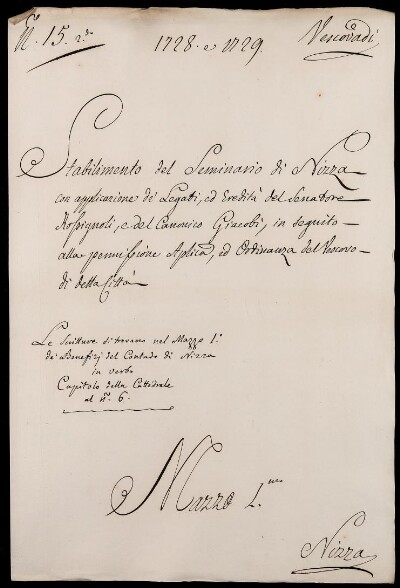 N. 15. 2.do
1728. e 1729.
Vescovadi
Stabilimento del Seminario di Nizza
con applicazione de' Legati, ed Eredità del Senatore
Rossignoli, e del Canonico Giacobi, in seguito
alla permissione Aplica, ed Ordinanza del Vescovo
di detta Città
Le Scritture si trovano nel Mazzo 1.o
de' Benefizj del Contado di Nizza
in verbo
Capitolo della Cattedrale
al n.o 6.
Mazzo 1.mo
Nizza